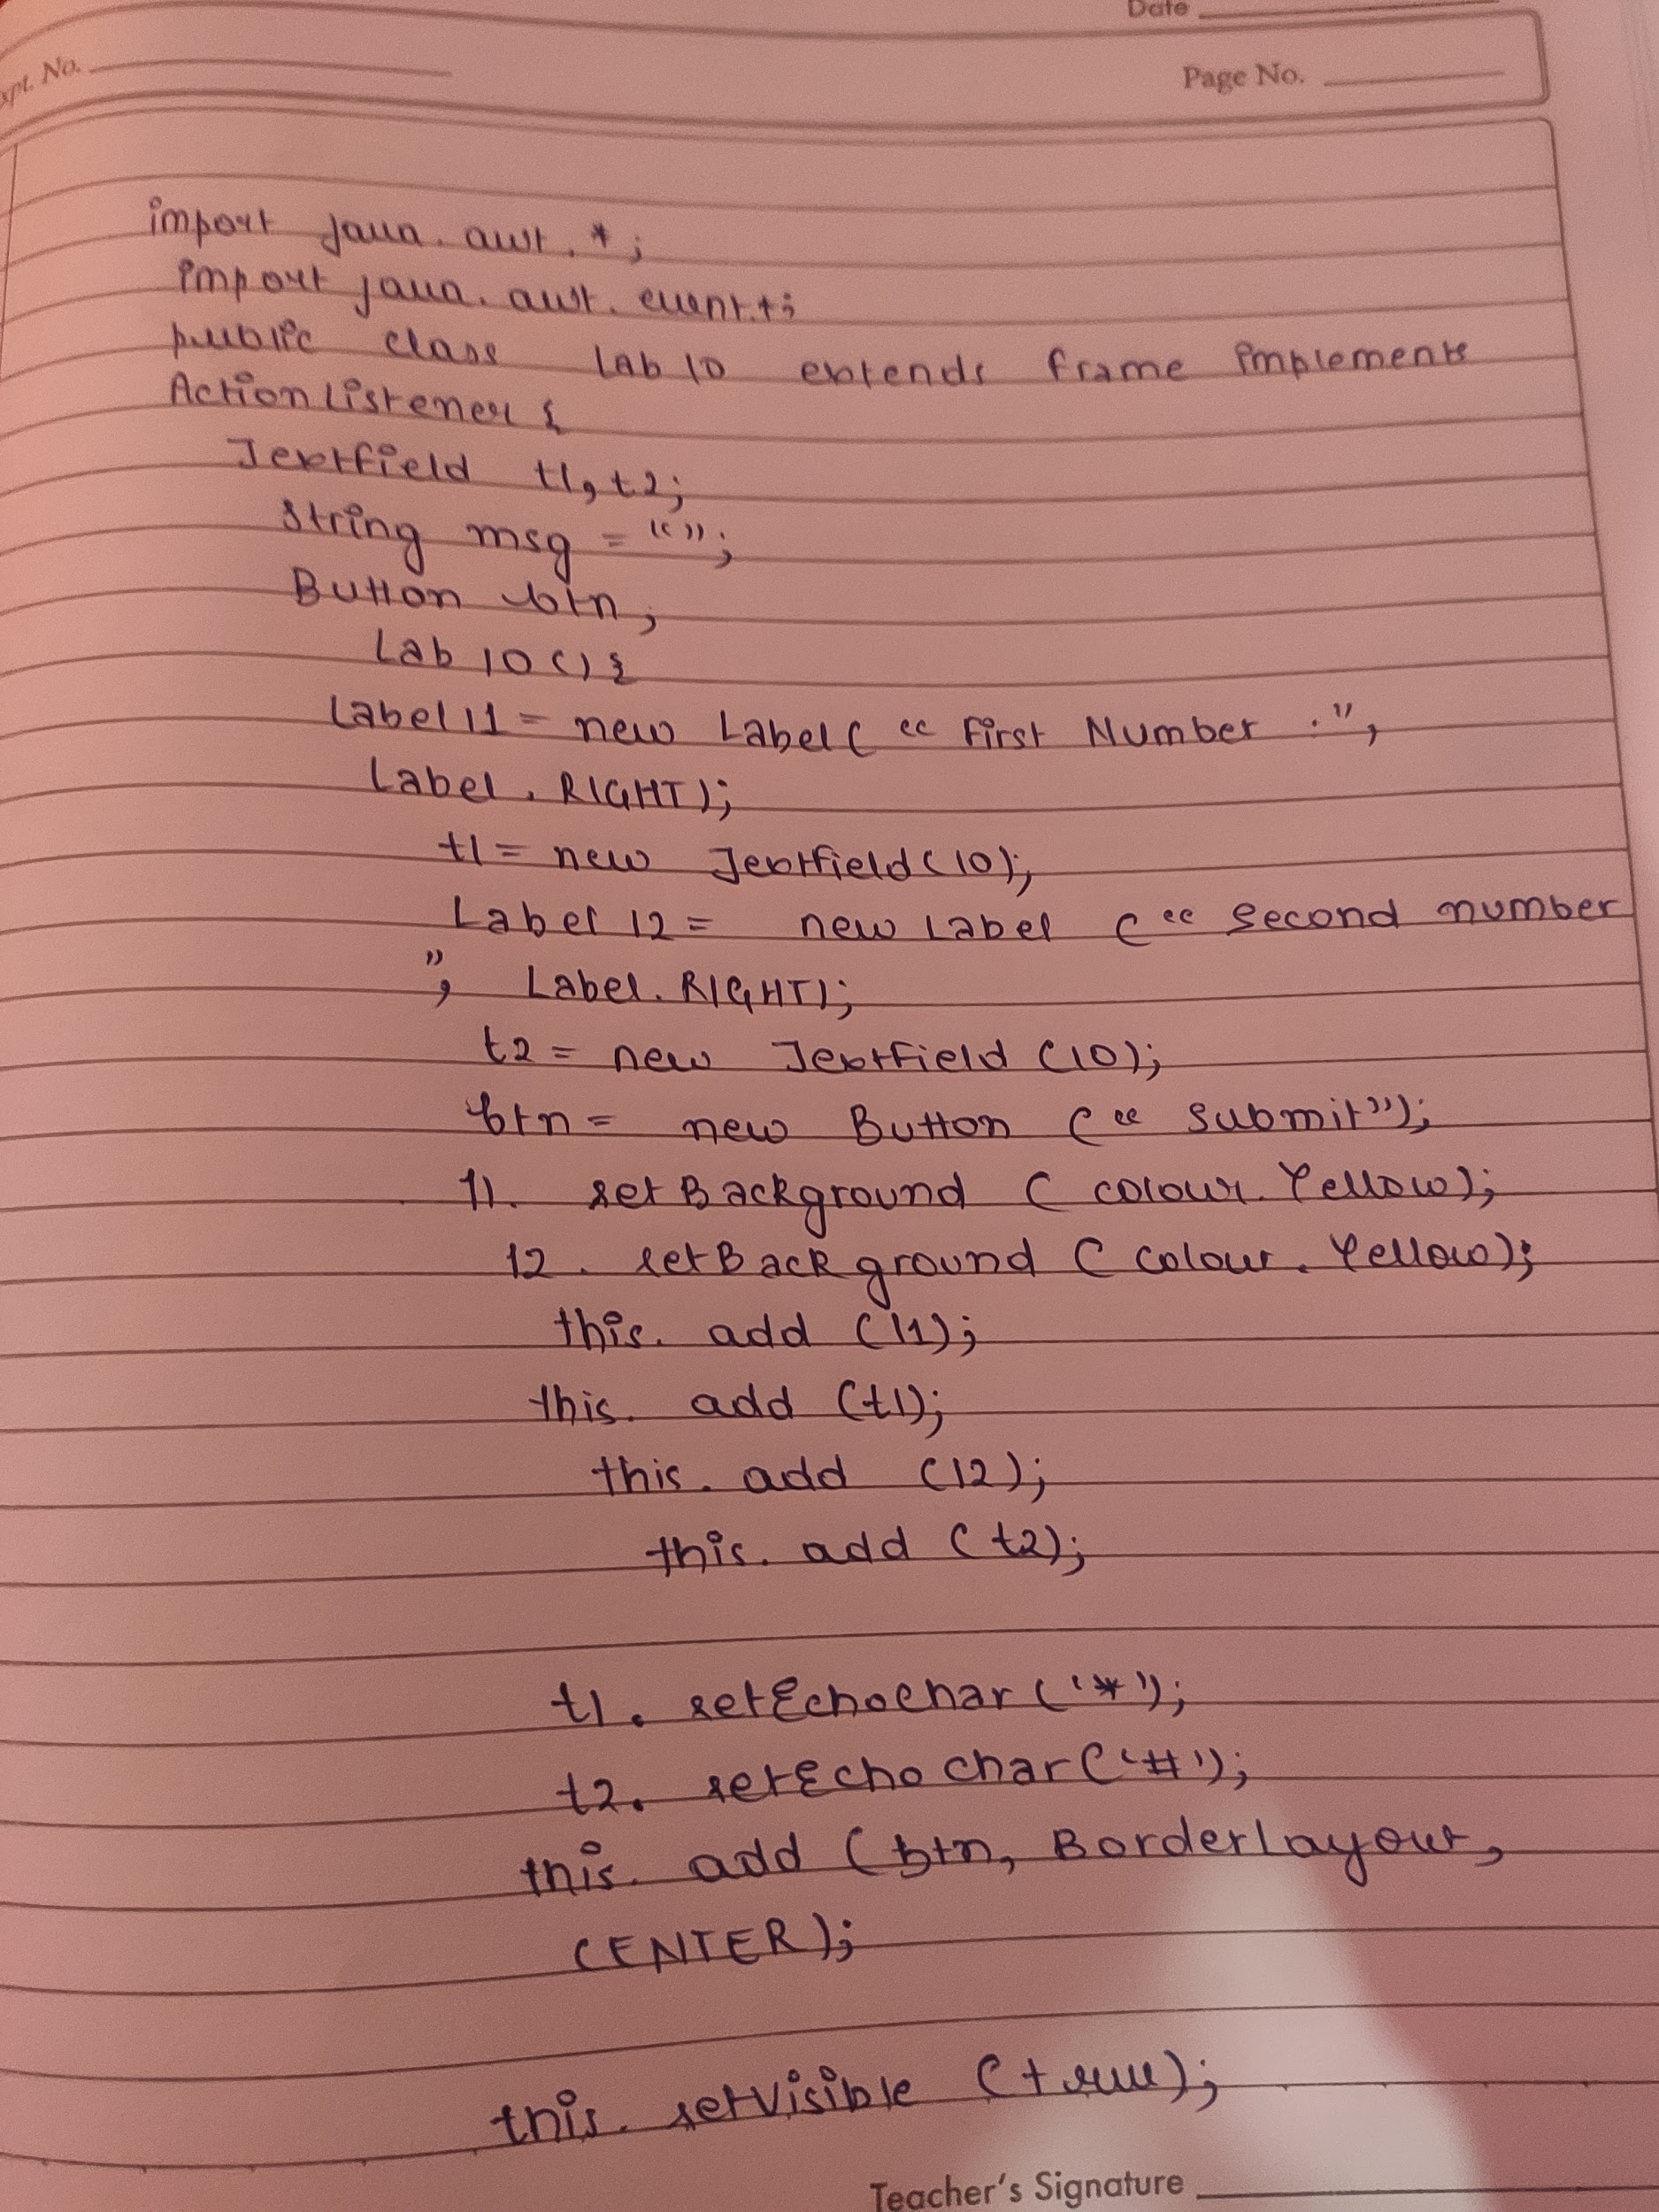 Date
Expt. No.
Page No.
import java.awt.*;
import java.awt.event.*;
public class Lab 10 extends frame implements
ActionListener {
Textfield t1, t2;
String msg = "";
Button btn;
Lab 10 () {
Label l1 = new Label ( " First Number :",
Label . RIGHT);
t1 = new Textfield (10);
Label l2 = new Label ( " Second number
", Label. RIGHT);
t2 = new Textfield (10);
btn = new Button ( " Submit");
l1. setBackground ( colour. Yellow);
l2. setBackground ( colour. Yellow);
this. add (l1);
this. add (t1);
this. add (l2);
this. add (t2);
t1. setEchochar ('*');
t2. setEcho char ('#');
this. add (btn, BorderLayout,
CENTER);
this. setVisible (true);
Teacher's Signature